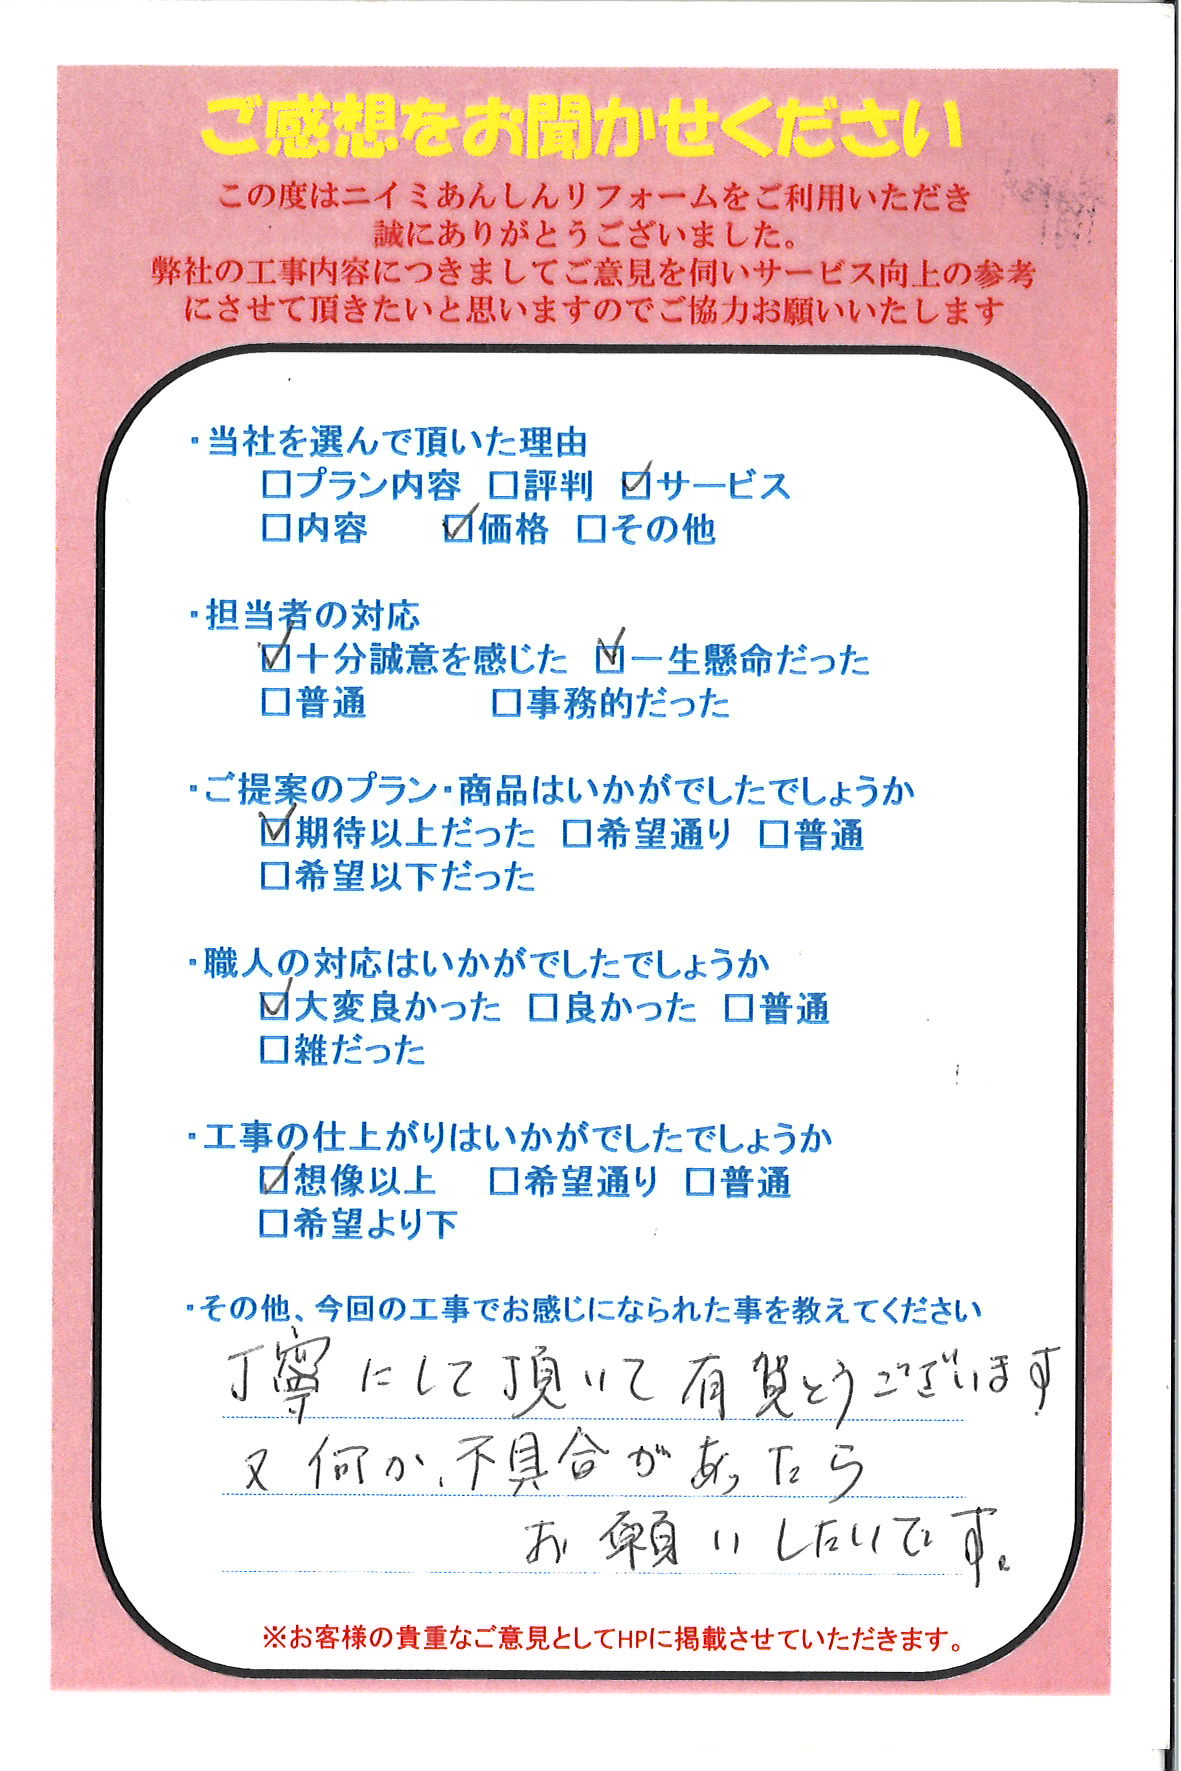 ご感想をお聞かせください
この度はニイミあんしんリフォームをご利用いただき
誠にありがとうございました。
弊社の工事内容につきましてご意見を伺いサービス向上の参考
にさせて頂きたいと思いますのでご協力お願いいたします
・当社を選んで頂いた理由
□プラン内容 □評判 ☑サービス
□内容 ☑価格 □その他
・担当者の対応
☑十分誠意を感じた ☑一生懸命だった
□普通 □事務的だった
・ご提案のプラン・商品はいかがでしたでしょうか
☑期待以上だった □希望通り □普通
□希望以下だった
・職人の対応はいかがでしたでしょうか
☑大変良かった □良かった □普通
□雑だった
・工事の仕上がりはいかがでしたでしょうか
☑想像以上 □希望通り □普通
□希望より下
・その他、今回の工事でお感じになられた事を教えてください
丁寧にして頂いて有賀とうございます
又何か、不具合があったら
お願いしたいです。
※お客様の貴重なご意見としてHPに掲載させていただきます。